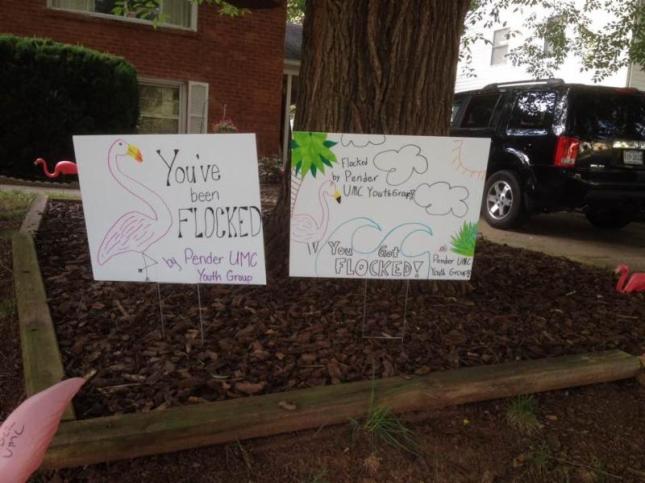 You've
been
FLOCKED
by Pender UMC
Youth Group
Flocked
by Pender
UMC Youth Group!
You Got
FLOCKED!
Pender UMC
Youth Group!
UMC